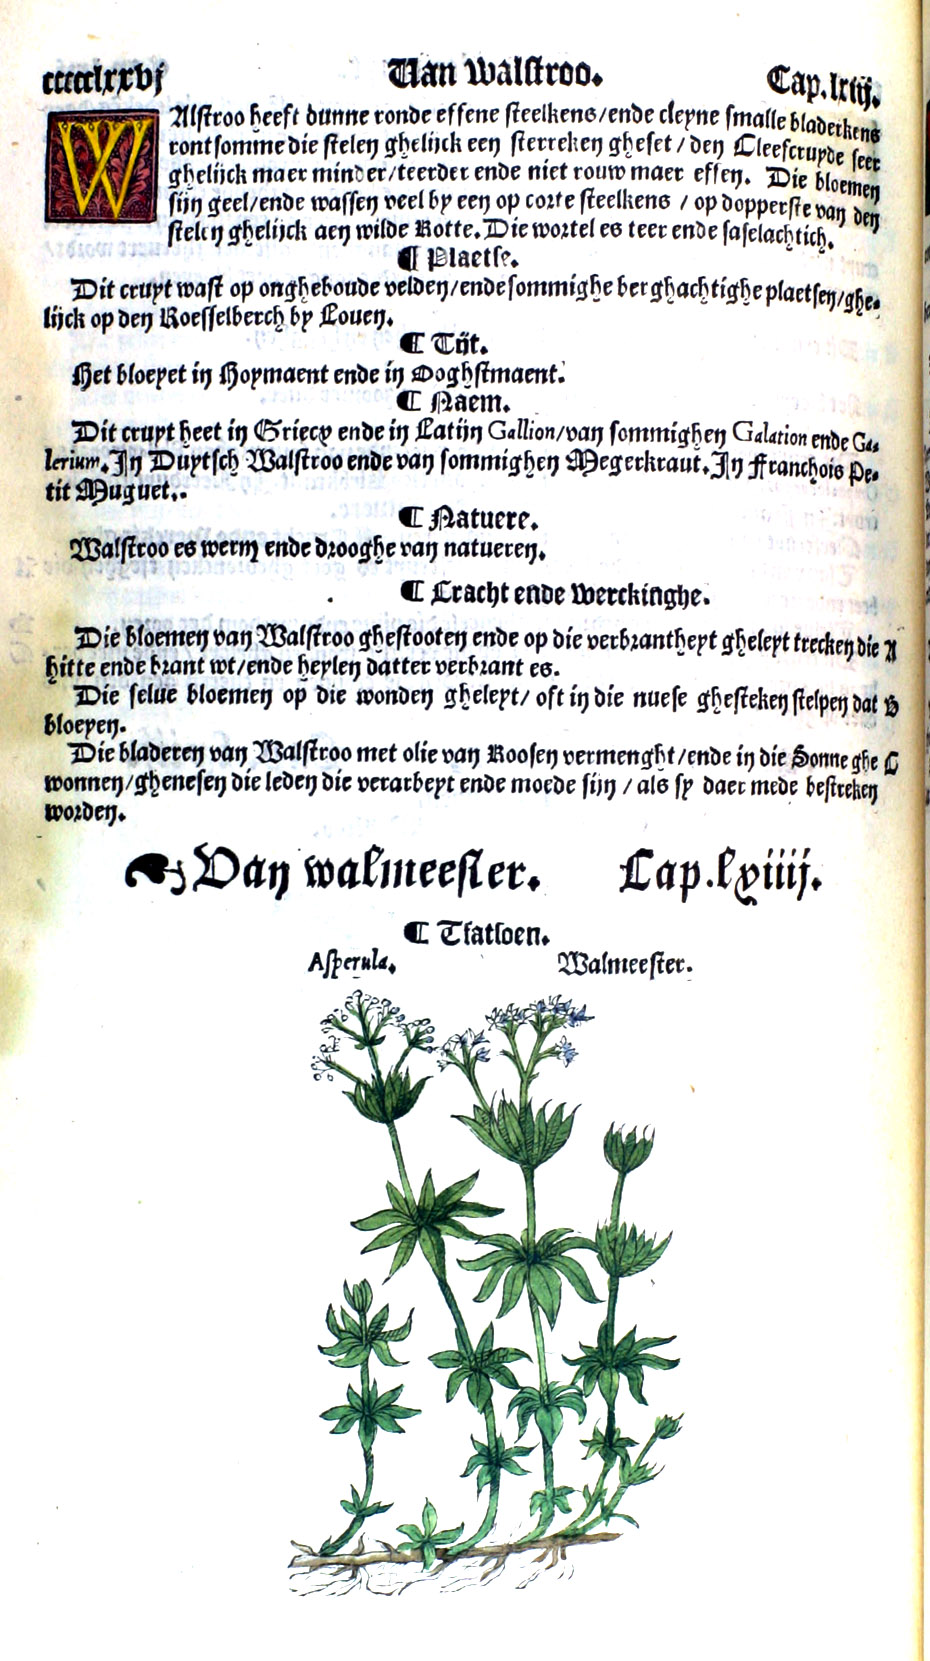 cccccclxxvj Van walstroo. Cap.lxiij.
WAlstroo heeft dunne ronde effene steelkens/ende cleyne smalle bladerkens
rontsomme die stelen ghelijck een sterreken gheset/den Cleefcruyde seer
ghelijck maer minder/teerder ende niet rouw maer effen. Die bloemen
sijn geel/ende wassen veel by een op corte steelkens / op dopperste van den
stelen ghelijck aen wilde Rotte. Die wortel es teer ende faselachtich.
¶ Plaetse.
Dit cruyt wast op ongheboude velden/ende sommighe berghachtighe plaetsen/ghe-
lijck op den Roesselberch by Loven.
¶ Tijt.
Het bloeyet in Hoymaent ende in Ooghstmaent.
¶ Naem.
Dit cruyt heet in Griecx ende in Latijn Gallion/van sommighen Galation ende Ga-
lerium. In Duytsch Walstroo ende van sommighen Megerkraut. In Franchois Pe-
tit Muguet.
¶ Natuere.
Walstroo es werm ende drooghe van natueren.
¶ Cracht ende werckinghe.
Die bloemen van Walstroo ghestooten ende op die verbrantheyt gheleyt trecken die A
hitte ende brant wt/ende heylen datter verbrant es.
Die selve bloemen op die wonden gheleyt/ oft in die nuese ghesteken stelpen dat B
bloeyen.
Die bladeren van Walstroo met olie van Roosen vermenght/ende in die Sonne ghe C
wonnen/ghenesen die leden die verarbeyt ende moede sijn / als sy daer mede bestreken
worden.
❧ Van walmeester. Cap.lxiiij.
¶ Tfatsoen.
Asperula. Walmeester.